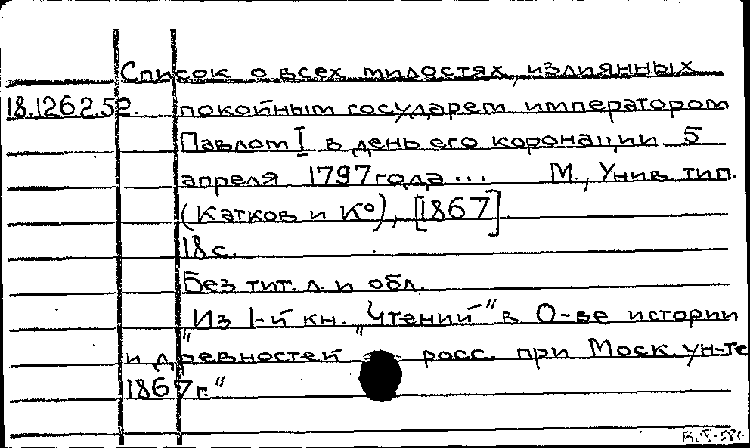 Список о всех милостях, излиянных
18.1262.52. покойным государем императором
Павлом I в день его коронации 5
апреля 1797 года ... М., Унив. тип.
(Катков и К°), [1867].
18 с.
Без тит. л. и обл.
"Из 1-й кн. "Чтений" в О-ве истории
и древностей росс. при Моск. ун-те
1867 г."